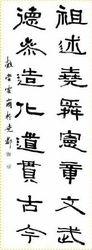 祖述堯舜憲章文武
德參造化道貫古今